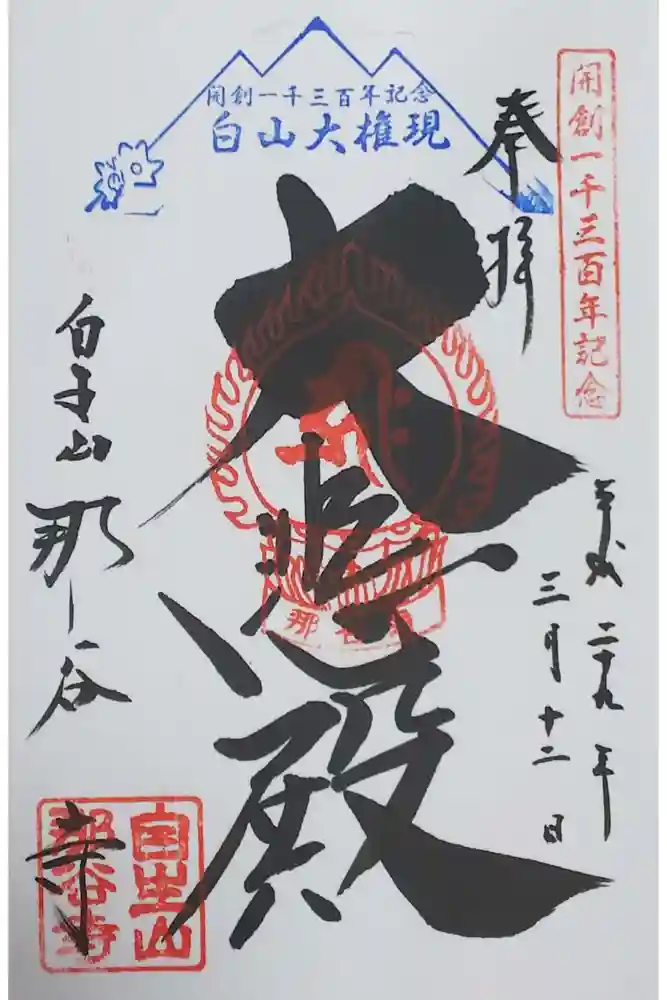 開創一千三百年記念
奉拝
平成二十九年
三月十二日
開創一千三百年記念
白山大権現
大悲殿
那谷寺
自生山
那谷寺
自生山
那谷寺